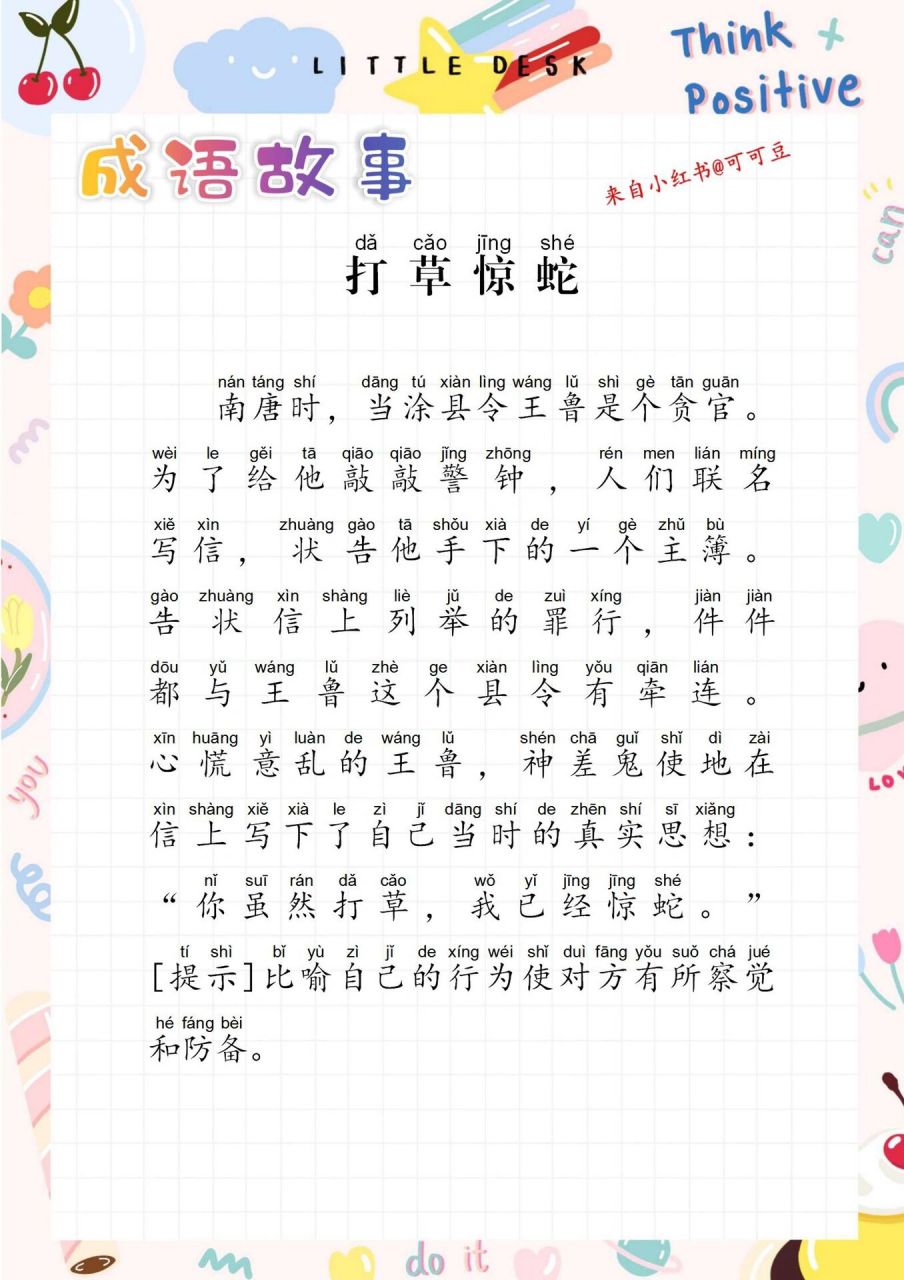 LITTLE DESK
Think +
Positive
成语故事
来自小红书@可可豆
dǎ cǎo jīng shé
打草惊蛇
can
nán táng shí dāng tú xiàn lìng wáng lǔ shì gè tān guān
南唐时，当涂县令王鲁是个贪官。
wèi le gěi tā qiāo qiāo jǐng zhōng rén men lián míng
为了给他敲敲警钟，人们联名
xiě xìn zhuàng gào tā shǒu xià de yí gè zhǔ bù
写信，状告他手下的一个主簿。
gào zhuàng xìn shàng liè jǔ de zuì xíng jiàn jiàn
告状信上列举的罪行，件件
dōu yǔ wáng lǔ zhè ge xiàn lìng yǒu qiān lián
都与王鲁这个县令有牵连。
xīn huāng yì luàn de wáng lǔ shén chā guǐ shǐ dì zài
心慌意乱的王鲁，神差鬼使地在
you
LOV
xìn shàng xiě xià le zì jǐ dāng shí de zhēn shí sī xiǎng
信上写下了自己当时的真实思想：
nǐ suī rán dǎ cǎo wǒ yǐ jīng jīng shé
“你虽然打草，我已经惊蛇。”
tí shì bǐ yù zì jǐ de xíng wéi shǐ duì fāng yǒu suǒ chá jué
[提示]比喻自己的行为使对方有所察觉
hé fáng bèi
和防备。
do it